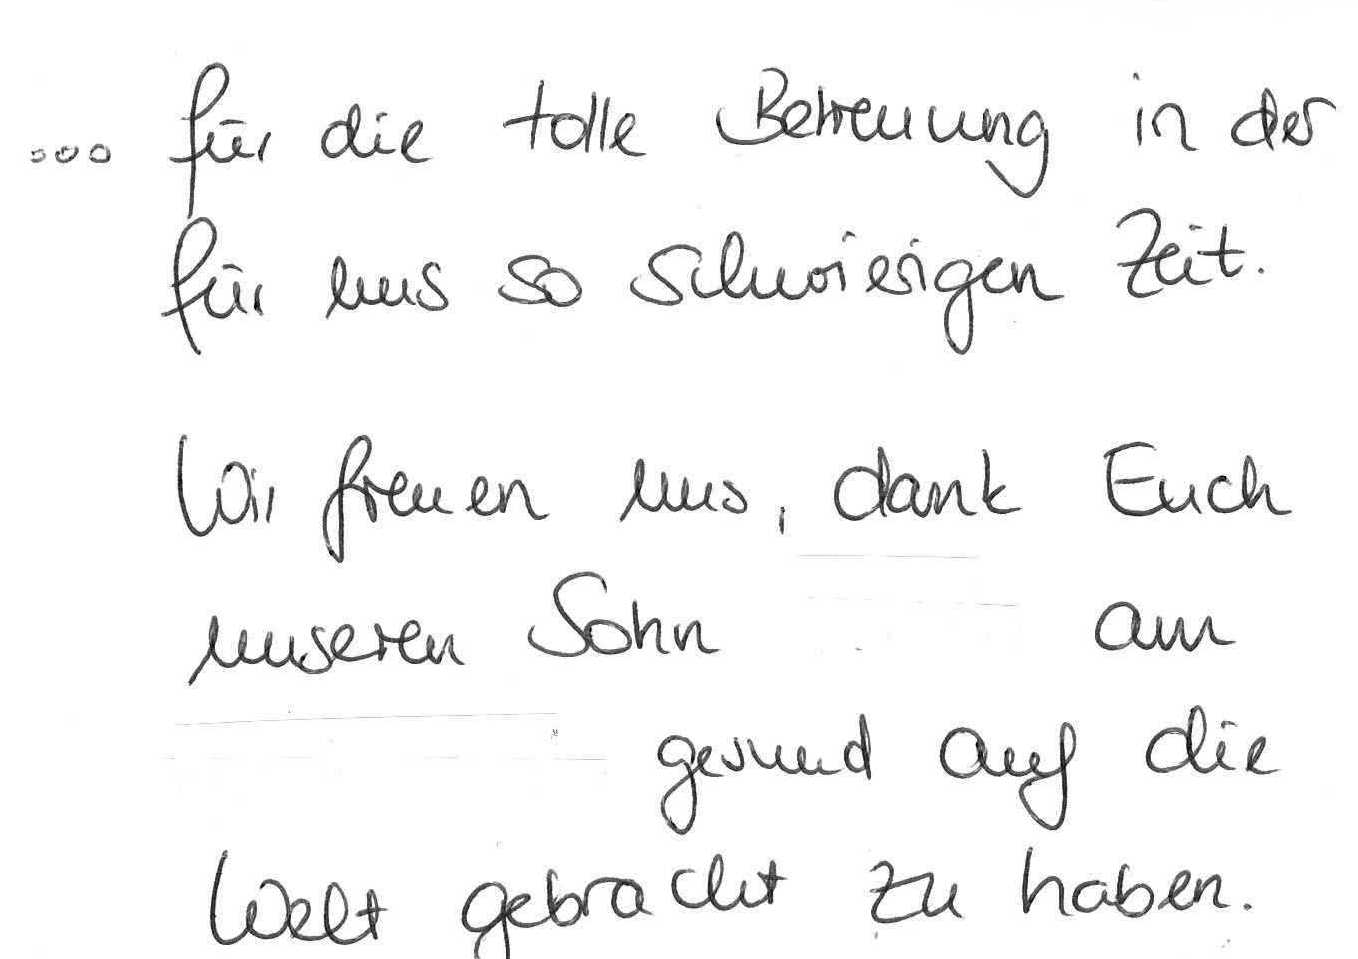 ... für die tolle Betreuung in der
für uns so schwierigen Zeit.
Wir freuen uns, dank Euch
unseren Sohn am
gesund auf die
Welt gebracht zu haben.